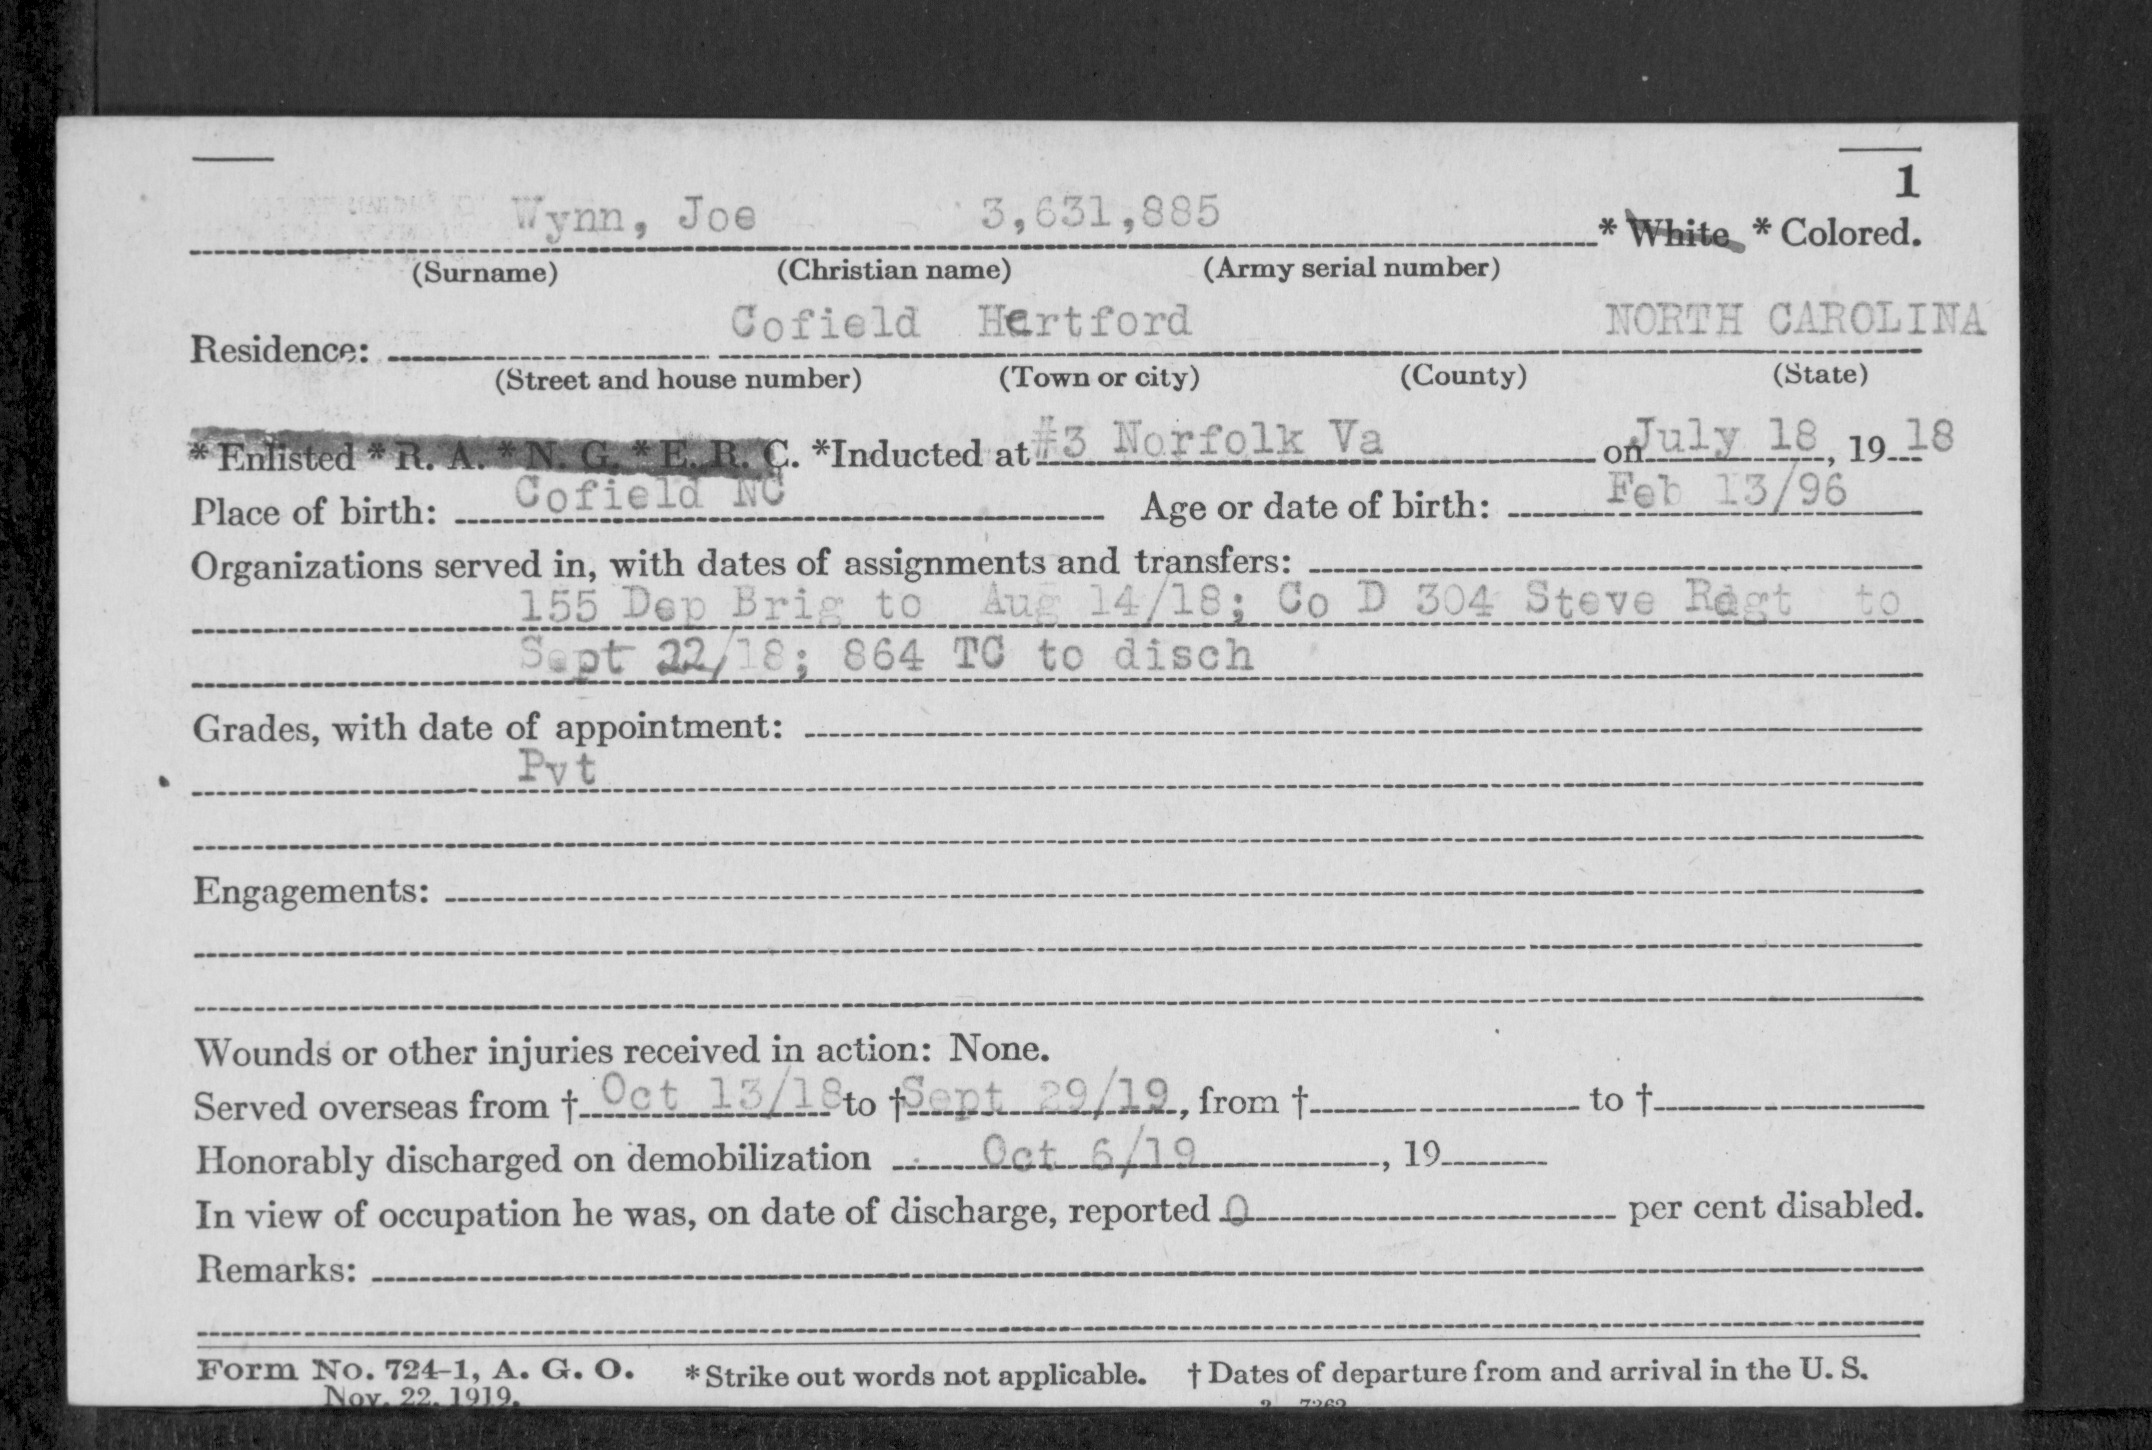 1
Wynn, Joe 3,631,885 * White * Colored.
(Surname) (Christian name) (Army serial number)
Cofield Hertford NORTH CAROLINA
Residence:
(Street and house number) (Town or city) (County) (State)
* Enlisted * R. A. * N. G. * E. R. C. *Inducted at #3 Norfolk Va on July 18, 19 18
Place of birth: Cofield NC Age or date of birth: Feb 13/96
Organizations served in, with dates of assignments and transfers:
155 Dep Brig to Aug 14/18; Co D 304 Steve Regt to
Sept 22/18; 864 TC to disch
Grades, with date of appointment:
Pvt
Engagements:
Wounds or other injuries received in action: None.
Served overseas from † Oct 13/18 to † Sept 29/19, from † to †
Honorably discharged on demobilization Oct 6/19, 19
In view of occupation he was, on date of discharge, reported 0 per cent disabled.
Remarks:
Form No. 724-1, A. G. O. * Strike out words not applicable. † Dates of departure from and arrival in the U. S.
Nov. 22, 1919.